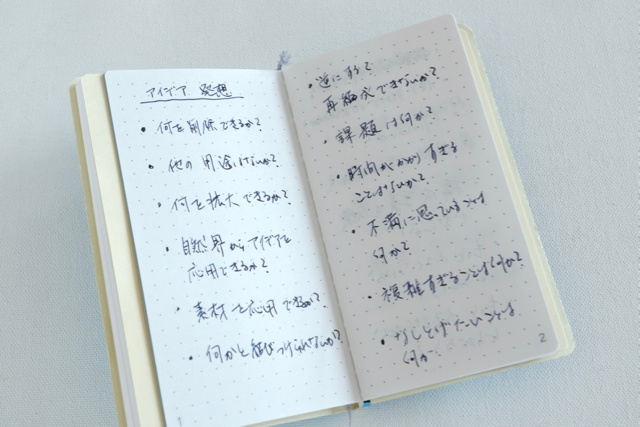 アイデア 発想
• 何を削除できるか?
• 他の用途はないか?
• 何を拡大できるか?
• 自然界からアイデアを
応用できるか?
• 素材を応用できるか?
• 何かと結びつけられないか?
1
• 逆にする?
再編成できないか?
• 課題は何か?
• 時間がかかりすぎる
ことはないか?
• 不満に思っていることは
何か?
• 複雑すぎることは何か?
• なしとげたいことは
何か
2